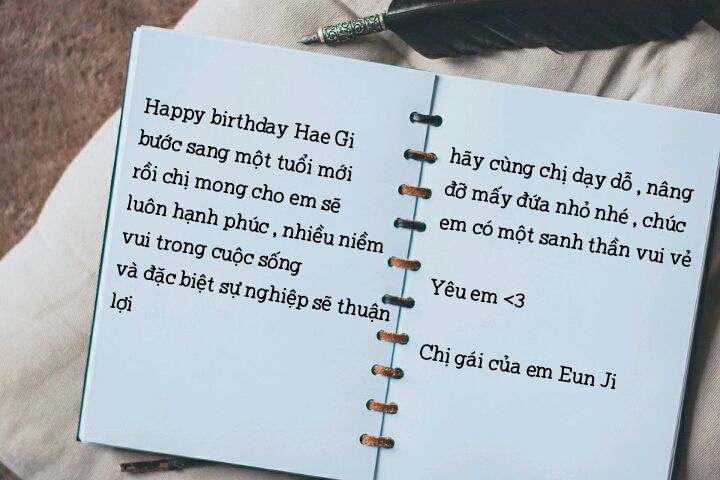 Happy birthday Hae Gi
bước sang một tuổi mới
rồi chị mong cho em sẽ
luôn hạnh phúc , nhiều niềm
vui trong cuộc sống
và đặc biệt sự nghiệp sẽ thuận
lợi
hãy cùng chị dạy dỗ , nâng
đỡ mấy đứa nhỏ nhé , chúc
em có một sanh thần vui vẻ
Yêu em <3
Chị gái của em Eun Ji